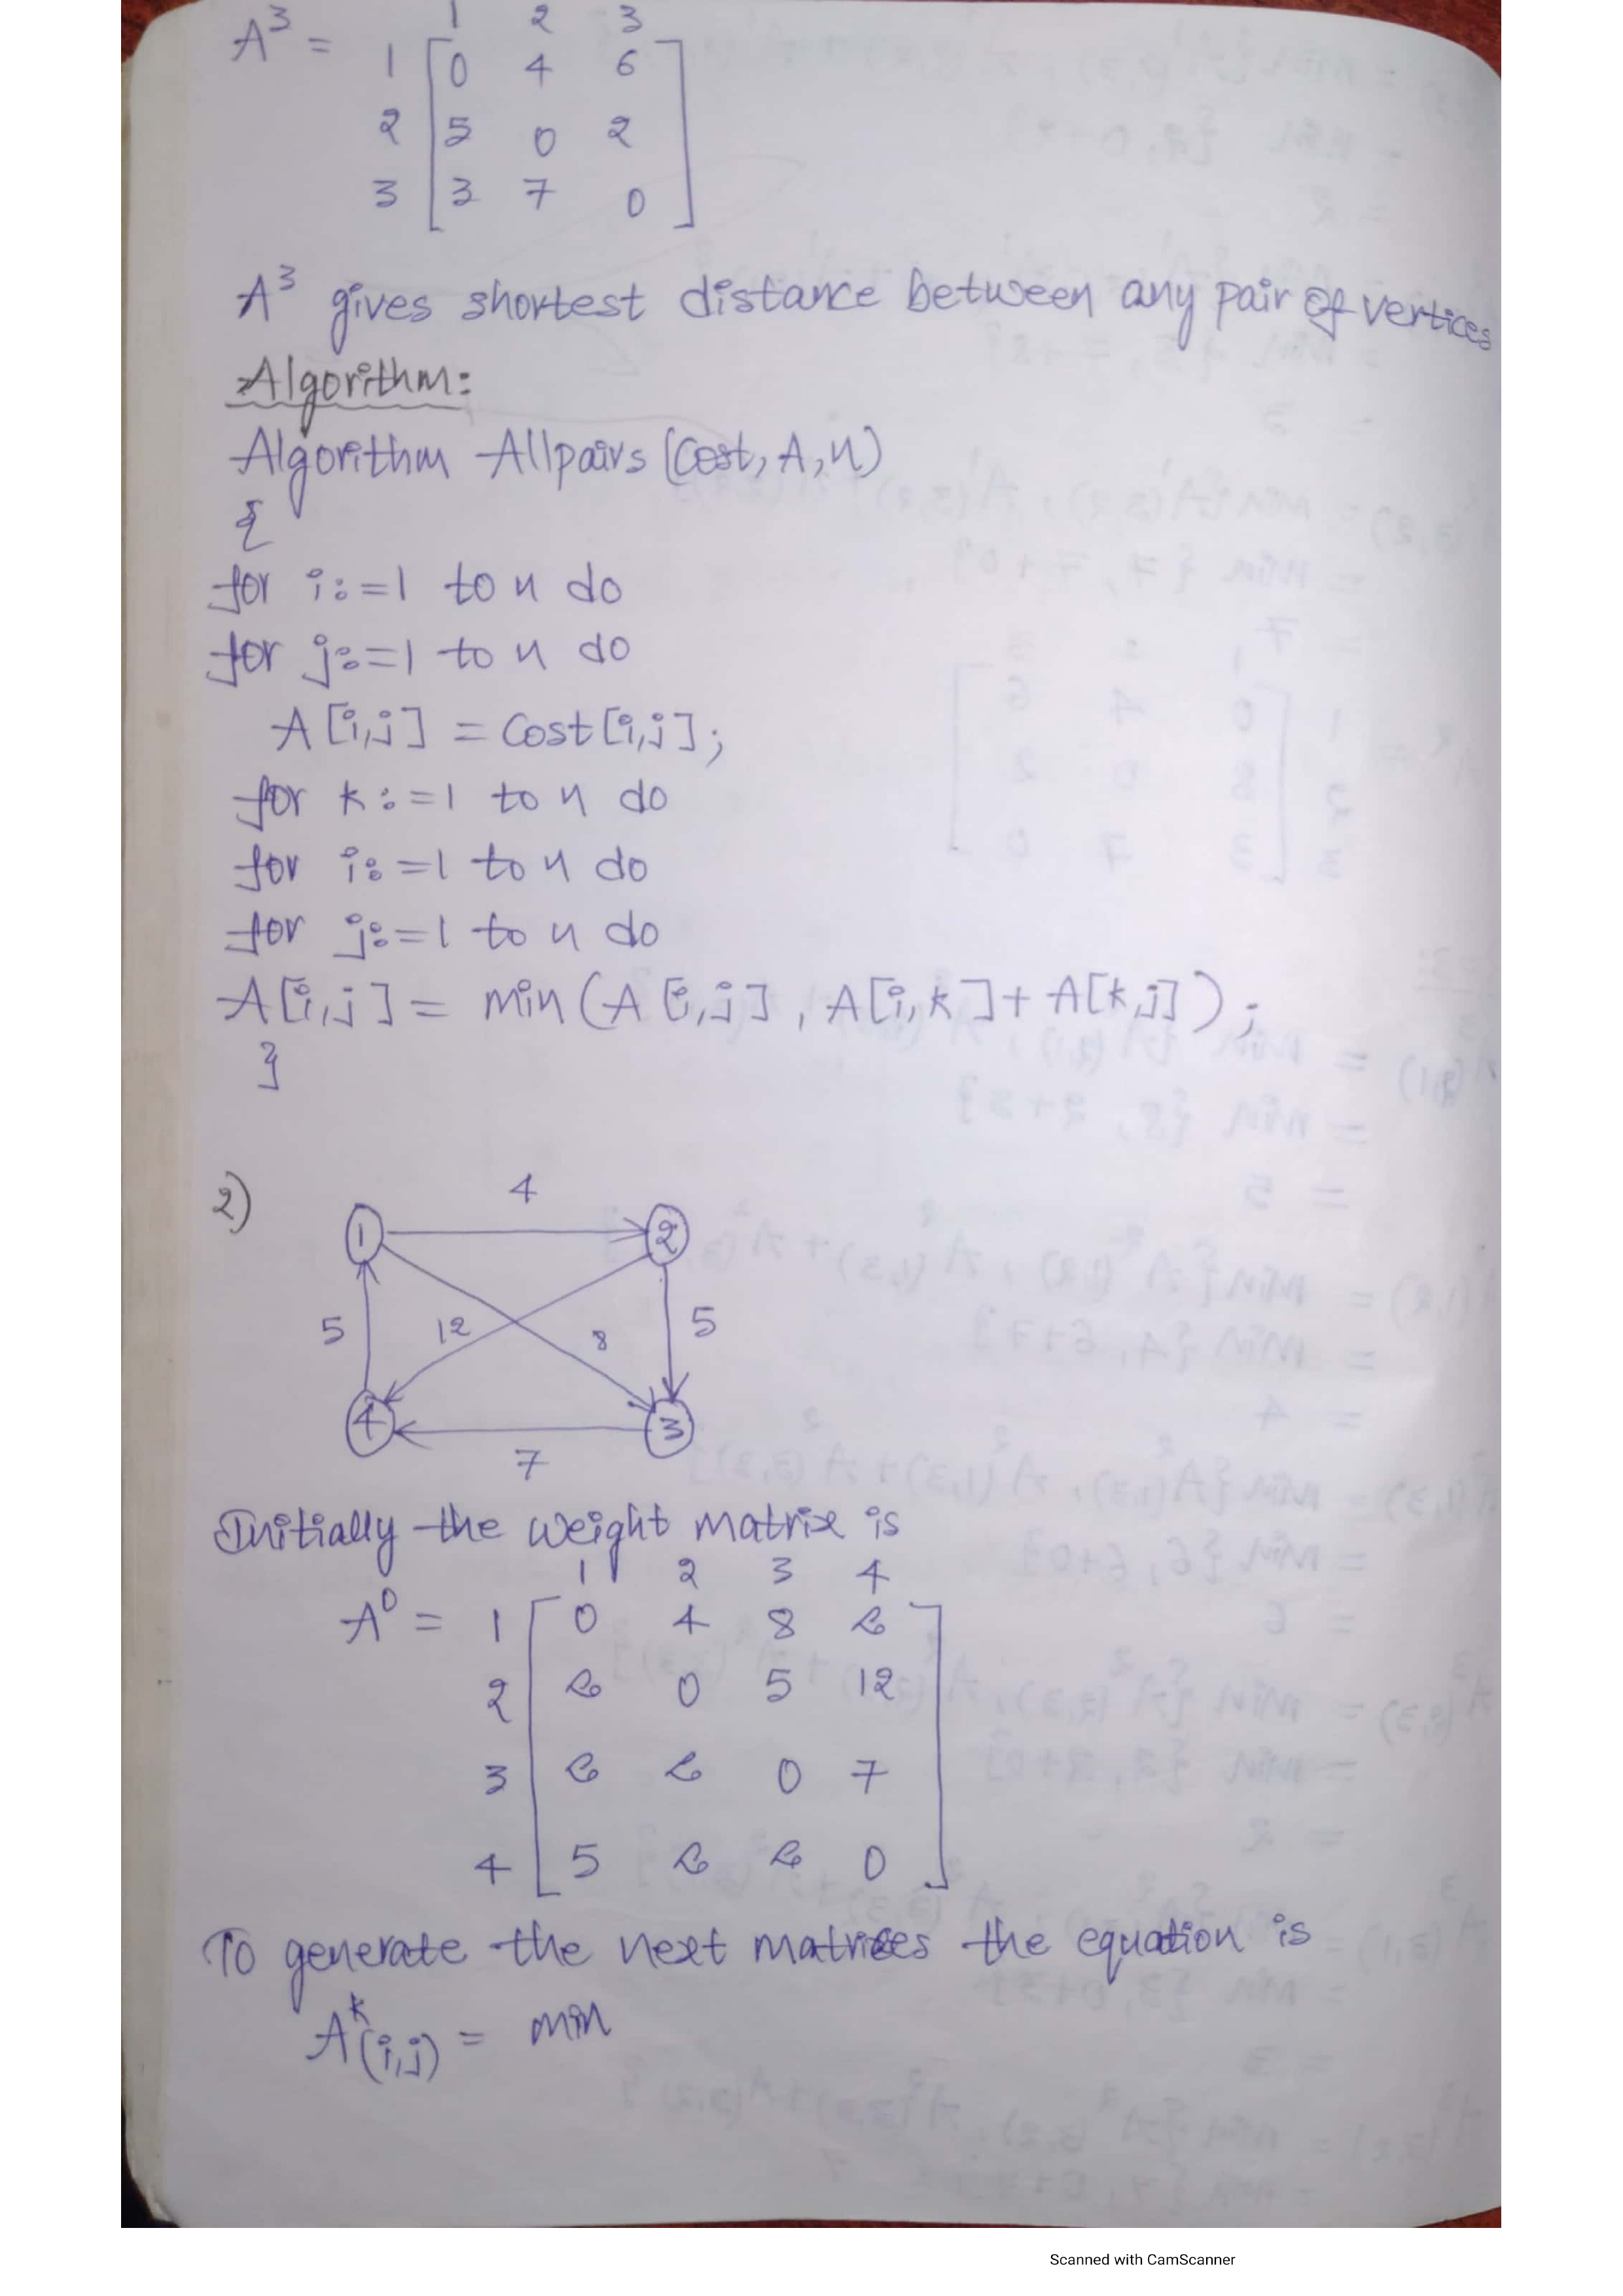 1 2 3
A³ = 1 [ 0 4 6 ]
2 [ 5 0 2 ]
3 [ 3 7 0 ]
A³ gives shortest distance between any pair of vertices
Algorithm:
Algorithm Allpairs (Cost, A, n)
{
for i:=1 to n do
for j:=1 to n do
A[i,j] = Cost[i,j];
for k:=1 to n do
for i:=1 to n do
for j:=1 to n do
A[i,j] = min(A[i,j], A[i,k]+A[k,j]);
}
2)
4
1 2
5 12 8 5
4 3
7
Initially the weight matrix is
1 2 3 4
A⁰ = 1 [ 0 4 8 ∞ ]
2 [ ∞ 0 5 12 ]
3 [ ∞ ∞ 0 7 ]
4 [ 5 ∞ ∞ 0 ]
To generate the next matrices the equation is
Aᵏ(i,j) = min
Scanned with CamScanner